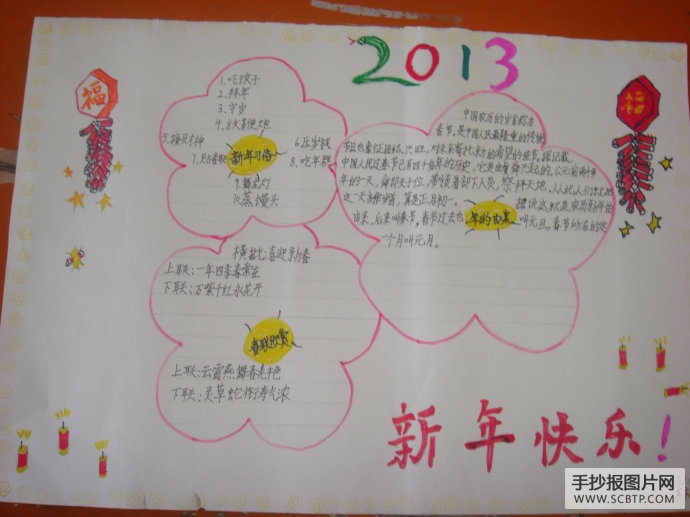 2013
福
1.吃饺子
2.拜年
3.守岁
4.放鞭炮
5.接财神
6.压岁钱
7.贴春联
新年习俗
8.吃年糕
10.蒸馒头
中国农历的岁首称为
春节,是中国人民最隆重的传统
节日,也象征团结、兴旺,对未来寄托新的希望的佳节。据记载,
中国人民过春节已有四千多年的历史,它是由虞舜兴起的。公元前两千多
年的一天,舜即天子位,带领着部下人员,祭拜天地。从此,人们就把
这一天当作岁首,算是正月初一。
据说这就是农历新年的
由来,后来叫春节,春节过去也
年的由来
叫元旦。春节所在的这
一个月叫元月。
横批:喜迎新春
上联:一年四季春常在
下联:万紫千红永花开
春联欣赏
上联:云霞燕舞春
下联:灵草蛇行寿气浓
新年快乐!
手抄报图片网
WWW.SCBTP.COM